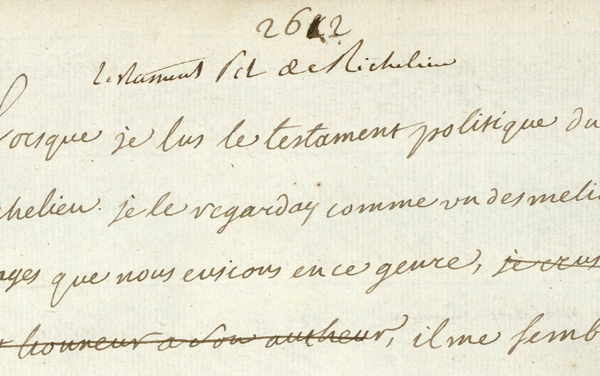 2612
testament Pol de Richelieu
Lorsque je lus le testament politique du
chelieu. je le regarday comme un des meli
ages que nous eusions en ce genre, je crus
t honneur a son autheur, il me semb